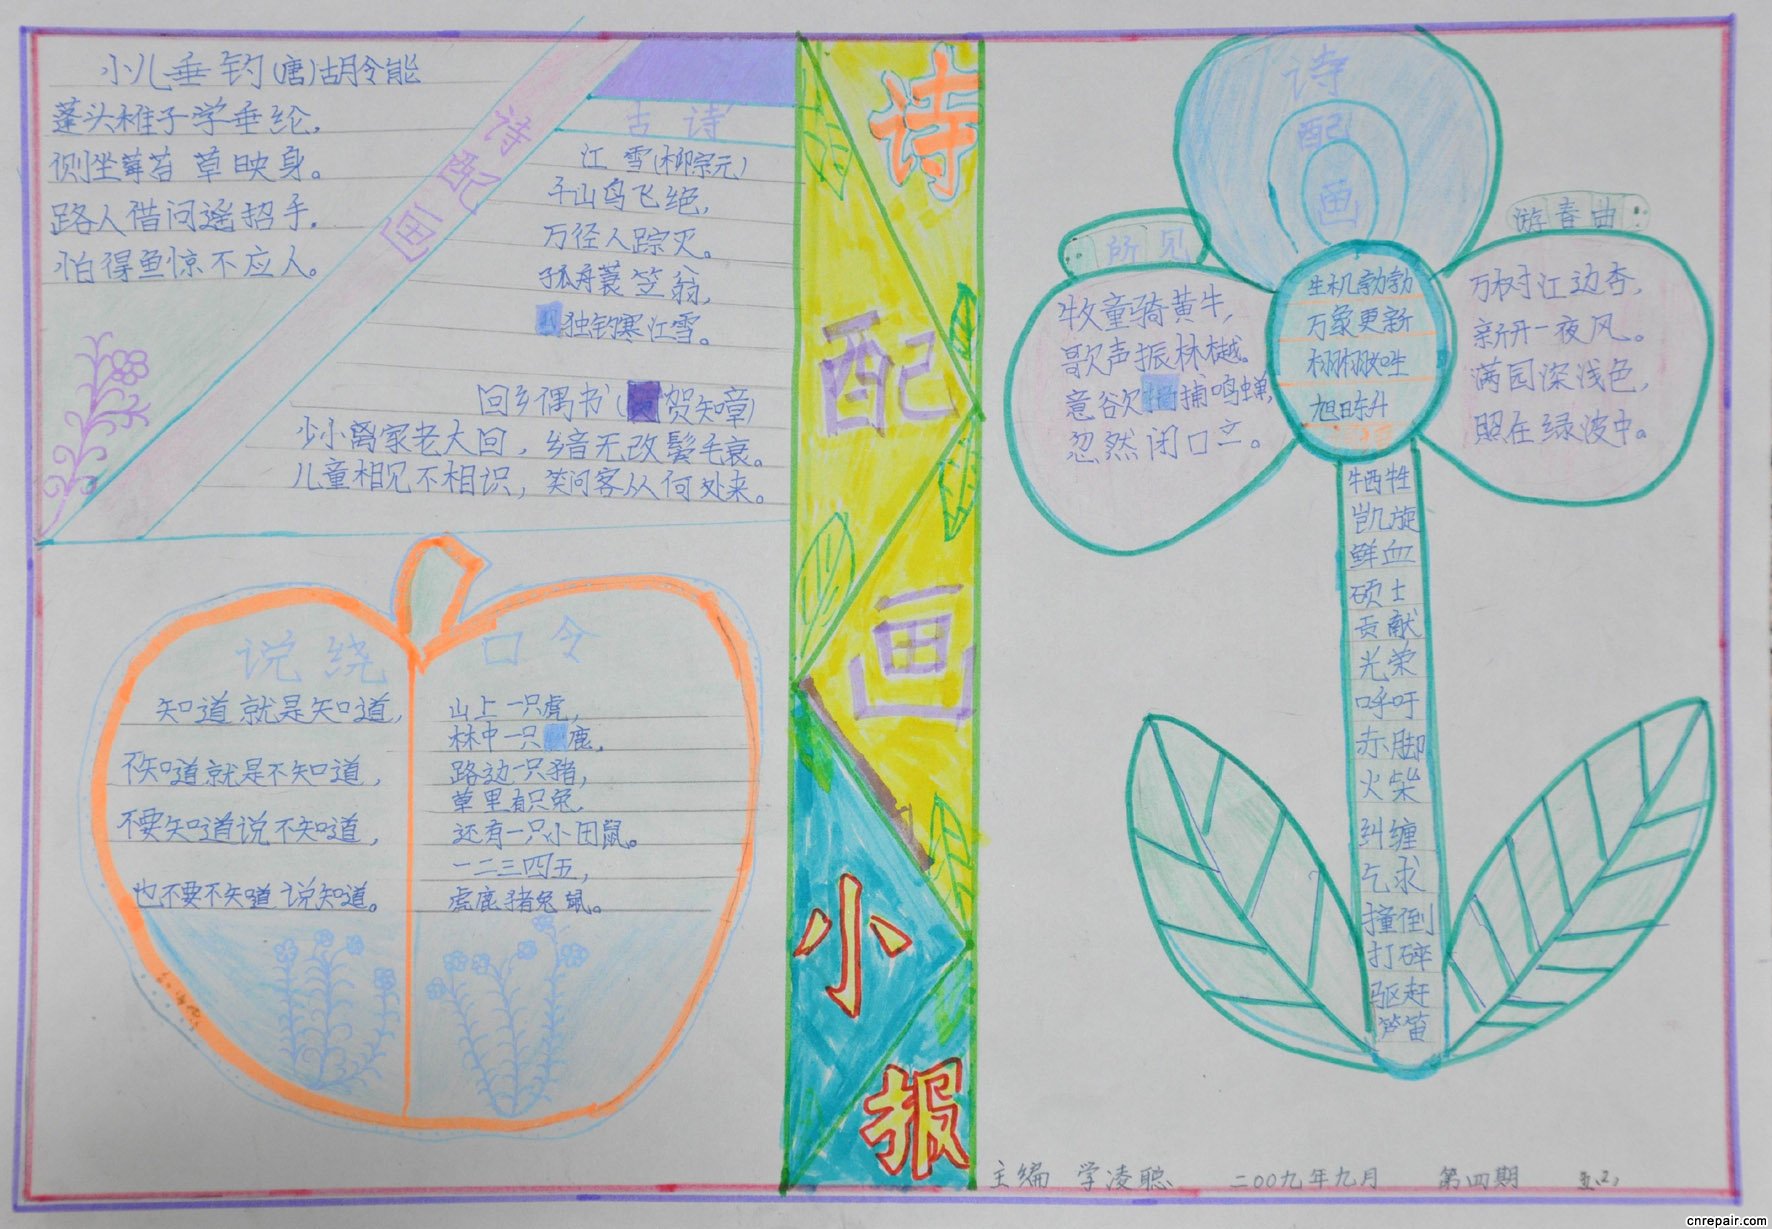 小儿垂钓(唐)胡令能
蓬头稚子学垂纶,
侧坐莓苔草映身。
路人借问遥招手,
怕得鱼惊不应人。
诗配画
古诗
江雪(柳宗元)
千山鸟飞绝,
万径人踪灭。
孤舟蓑笠翁,
独钓寒江雪。
回乡偶书(贺知章)
少小离家老大回,乡音无改鬓毛衰。
儿童相见不相识,笑问客从何处来。
说绕口令
知道就是知道,
不知道就是不知道,
不要知道说不知道,
也不要不知道说知道。
山上一只虎,
林中一只鹿,
路边一只猪,
草里有只兔,
还有一只小田鼠。
一二三四五,
虎鹿猪兔鼠。
诗配画小报
诗配画
所见
牧童骑黄牛,
歌声振林樾。
意欲捕鸣蝉,
忽然闭口立。
生机勃勃
万象更新
栩栩如生
旭日东升
游春曲
万树江边杏,
新开一夜风。
满园深浅色,
照在绿波中。
牺牲
凯旋
鲜血
硕士
贡献
光荣
呼吁
赤脚
火柴
纠缠
乞求
撞倒
打碎
驱赶
芦笛
主编 学凌聪 二00九年九月 第四期 五.2)
cnrepair.com